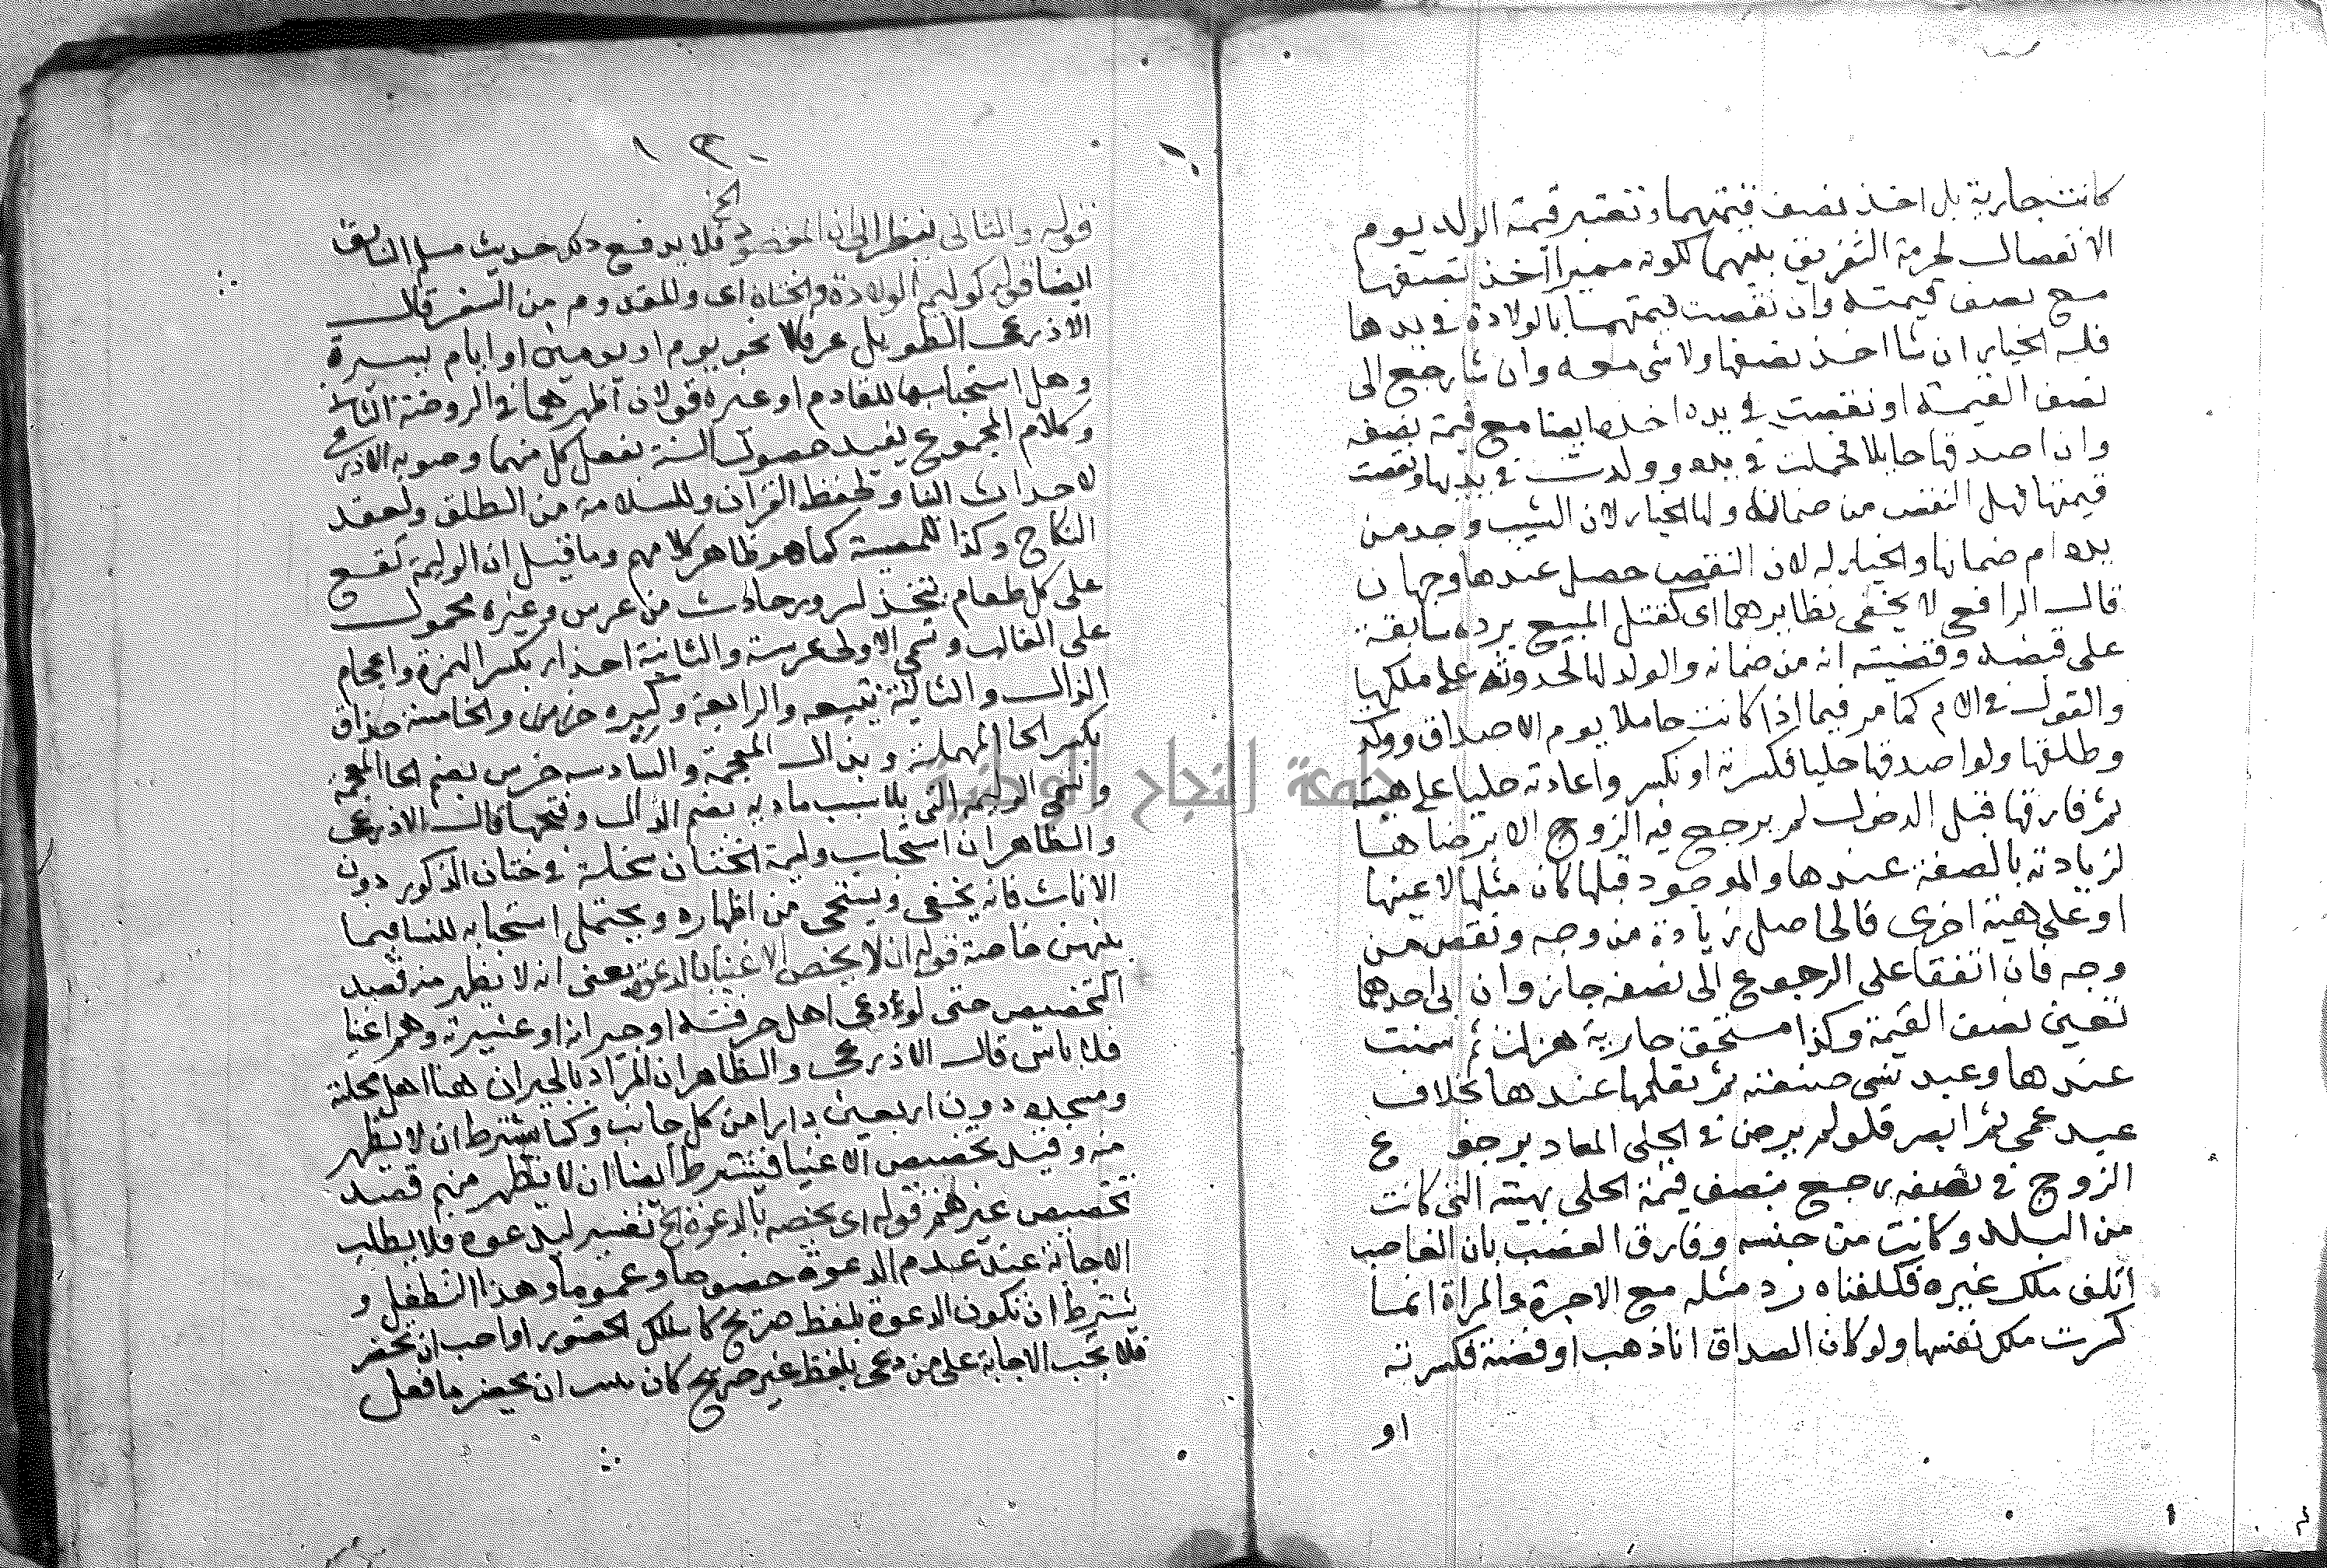 كانت جارية بل اخذ نصف قيمتهما وتعتبر قيمة الولد يوم
الانفصال لحرمة التفريق بينهما لكونه مميرا آخذ نصفها
مع نصف قيمته وان نقصت قيمتهما بالولادة في يدها
فله الخيار ان شا اخذ نصفها ولا شي معه وان شا رجع الى
نصف القيمة او نقصت في يده اخذها ايضا مع قيمة نصفه
وان اصدقها حايلا فحملت في يده وولدت في يديها ونقصت
قيمتها فهل النقص من ضمانه ولها الخيار لان السبب وجد من
يده ام ضمانها والخيار له لان النقص حصل عندها وجهان
قال الرافعي لا يخفى نظايرهما اى كقتل المبيع برده سابقة
على قبضه وقضيته انه من ضمانه والولد لها لحدوثه على ملكها
والقول في الام كما مر فيما اذا كانت حاملا يوم الاصداق وولد
وطلقها ولو اصدقها حليا فكسرته او نكسر واعادته حليا على هيئته
ثم فارقها قبل الدخول لم يرجع فيه الزوج الا برضاها
لزيادته بالصفة عندها والموجود قبلها كان مثلها لا عينها
او على هيئة اخرى فالحاصل زيادة من وجه ونقص من
وجه فان اتفقا على الرجوع الى نصفه جاز وان ابى احدهما
تعين نصف القيمة وكذا مستحق جارية هزلت ثم سمنت
عندها وعبد نسى صنعته ثم تعلمها عندها بخلاف
عبد عمى ثم ابصر فلو لم يرض في الحلى المعاد برجوع
الزوج في نصفه رجع بنصف قيمة الحلى بهيئته التي كانت
من البلد وكانت من جنسه وفارق الغصب بان الغاصب
اتلف ملك غيره فكلفناه رد مثله مع الاجرة والمراة انما
كسرت ملك نفسها ولو كان الصداق انا ذهب او فضة فكسرته
او
١٣٠
قوله والثانى ينظر الى ان المقصود الخ فلا يدفع ذلك حديث مسلم السابق
ايضا قوله كوليمة الولادة والختان اى وللقدوم من السفر قال
الاذرعى الطويل عرفا لا نحو يوم او يومين او ايام يسيرة
وهل استحبابها للقادم او غيره قولان اظهرهما في الروضة الثانى
وكلام المجموع يفيد حصول السنة بفعل كل منهما وصوبه الاذرعى
لاحداث البنا ولحفظ القران وللسلامة من الطلق ولعقد
النكاح وكذا للمصيبة كما هو ظاهر كلامهم وما قيل ان الوليمة تقع
على كل طعام يتخذ لسرور حادث من عرس وغيره محمول
على الغالب وتسمى الاولى عرسا والثانية اعذار بكسر الهمزة واعجام
الذال والثالثة نقيعه والرابعة وكيره من وكر والخامسة حذاق
بكسر الحا المهملة وبذال المعجمة والسادسه خرس بضم الخا المعجمة
وتسمى الوليمة التي بلا سبب مادبه بضم الدال وفتحها قال الاذرعى
والظاهر ان استحباب وليمة الختان محله في ختان الذكور دون
الاناث فانه يخفى ويستحى من اظهاره ويحتمل استحبابه للنسا فيما
بينهن خاصة قوله ان لا يخص الاغنيا بالدعوة يعنى انه لا يظهر منه قصد
التخصيص حتى لو دعى اهل حرفته او جيرانه او عشيرته وهم اغنيا
فلا باس قال الاذرعى والظاهر ان المراد بالجيران هنا اهل محلته
ومسجده دون اربعين دارا من كل جانب وكما يشترط ان لا يظهر
منه وقيد تخصيص الاغنيا فيشترط ايضا ان لا يظهر منهم قصد
تخصيص غيرهم قوله اى يخصه بالدعوة الخ تفسير ليدعوه فلا يطلب
الاجابة عند عدم الدعوة خصوصا وعموما وهذا التطفل و
يشترط ان تكون الدعوة بلفظ صريح كاسالك الحضور او احب ان تحضر
فلا تجب الاجابة على من دعى بلفظ غير صريح كان ان يحضر ما فعل
جامعة النجاح الوطنية